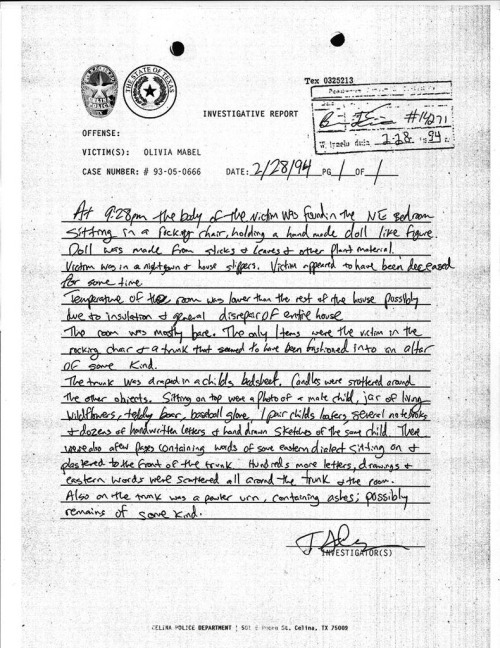 THE STATE OF TEXAS
Tex 0325213
INVESTIGATIVE REPORT
#14271
2-28 1994
OFFENSE:
VICTIM(S): OLIVIA MABEL
CASE NUMBER: # 93-05-0666 DATE: 2/28/94 PG 1 OF 1
At 9:28pm the body of the victim was found in the NE Bedroom
Sitting in a rocking chair, holding a hand made doll like figure.
Doll was made from sticks & leaves & other plant material.
Victim was in a nightgown & house slippers. Victim appeared to have been deceased
for some time.
Temperature of the room was lower than the rest of the house possibly
due to insulation & general disrepair of entire house
The room was mostly bare. The only Items were the victim in the
rocking chair & a trunk that seemed to have been fashioned into an altar
of some kind.
The trunk was draped in a childs bedsheet. Candles were scattered around
the other objects. Sitting on top were a Photo of a male child, jar of living
wildflowers, teddy bear, baseball glove, 1 pair childs loafers, several notebooks
& dozens of handwritten letters & hand drawn sketches of the same child. There
were also a few pages containing words of some eastern dialect sitting on &
plastered to the front of the trunk. Hundreds more letters, drawings &
eastern words were scattered all around the trunk & the room.
Also on the trunk was a pewter urn, containing ashes; possibly
remains of some kind.
INVESTIGATOR(S)
CELINA POLICE DEPARTMENT | 501 E St, Celina, TX 75009